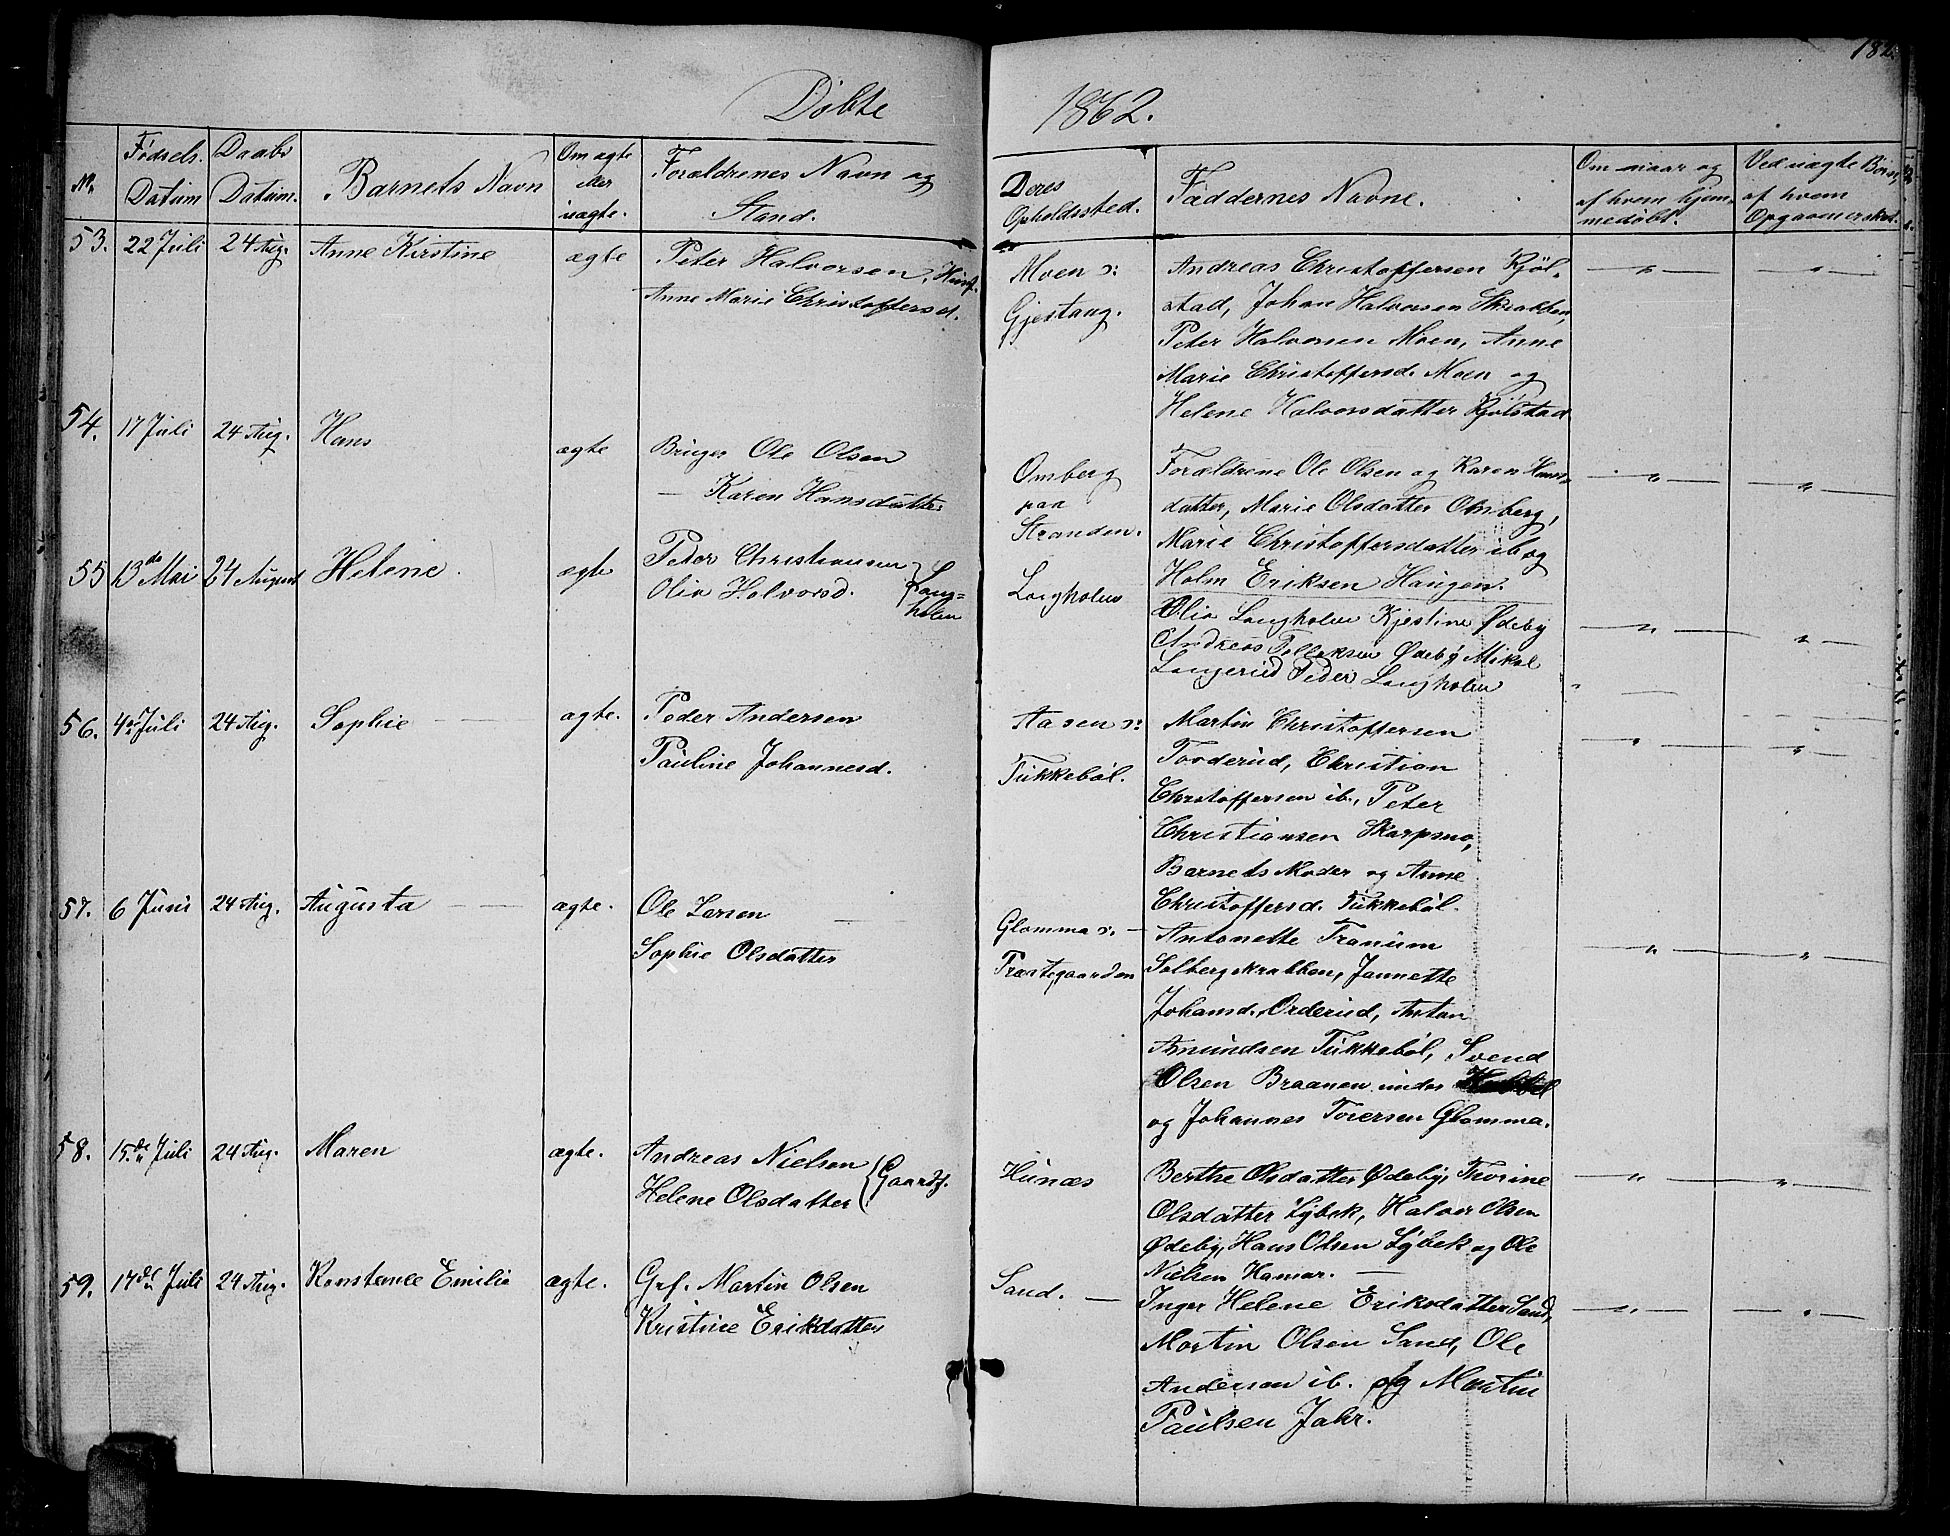 182.
Döbte 1862.
No. Fødsels Datum Daabs Datum. Barnets Navn Om ægte eller uægte. Forældrenes Navn og Stand. Deres Opholdssted. Faddernes Navne. Om naar og af hvem hjemmedøbt. Ved uægte Börn, af hvem Opgaven er sket.
53. 22 Juli 24 Aug. Anne Kirstine ægte Peter Halvorsen, Husf.
Anne Marie Christoffersd.
Moen s:
Gjestang.
Andreas Christoffersen Kjöl-
stad, Johan Halvorsen Skrabben,
Peter Halvorsen Moen, Anne
Marie Christoffersd. Moen og
Helene Halvorsdatter Kjölstad
54. 17 Juli 24 Aug. Hans ægte Bruger Ole Olsen
— Karen Hansdatter
Omberg
paa
Stranden.
Forældrene Ole Olsen og Karen Hans-
datter, Marie Olsdatter Omberg,
Marie Christoffersdatter ib og
Holm Eriksen Haugen.
55 13de Mai 24 August Helene. ægte Peder Christiansen
Olia Halvorsd. Lang=
holen
Langholen
Olia Langholen Kjestine Ødeby
Andreas Tollefsen Ødeby Mikal
Langerud Peder Langholen
56. 4de Juli 24 Aug. Sophie ægte. Peder Andersen
Pauline Johannesd.
Aasen s:
Tukkeböl.
Martin Christoffersen
Torderud, Christian
Christoffersen ib., Peter
Christiansen Skarpsno,
Barnets Moder og Anne
Christoffersd. Tukkeböl.
57. 6 Juni 24 Aug. Augusta ægte. Ole Larsen
Sophie Olsdatter
Glomma s. —
Præstegaarden
Antonette Tranum
Solbergskrabben, Jannette
Johansd. Orderud, Anton
Amundsen Tukkeböl, Svend
Olsen Braanen under
og Johannes Toversen Glomma.
58. 15de Juli 24 Aug. Maren ægte. Andreas Nielsen
Helene Olsdatter Gaardf.
Hunæs
Berthe Olsdatter Ødeby, Thorine
Olsdatter Lybek, Halvor Olsen
Ødeby, Hans Olsen Lybek og Ole
Nielsen Hamar. —
59. 17de Juli 24 Aug. Konstance Emilie ægte. Grf. Martin Olsen
Kristine Erikdatter
Sand. —
Inger Helene Eriksdatter Sand,
Martin Olsen Sand, Ole
Andersen ib. og Martin
Paulsen Jahr.